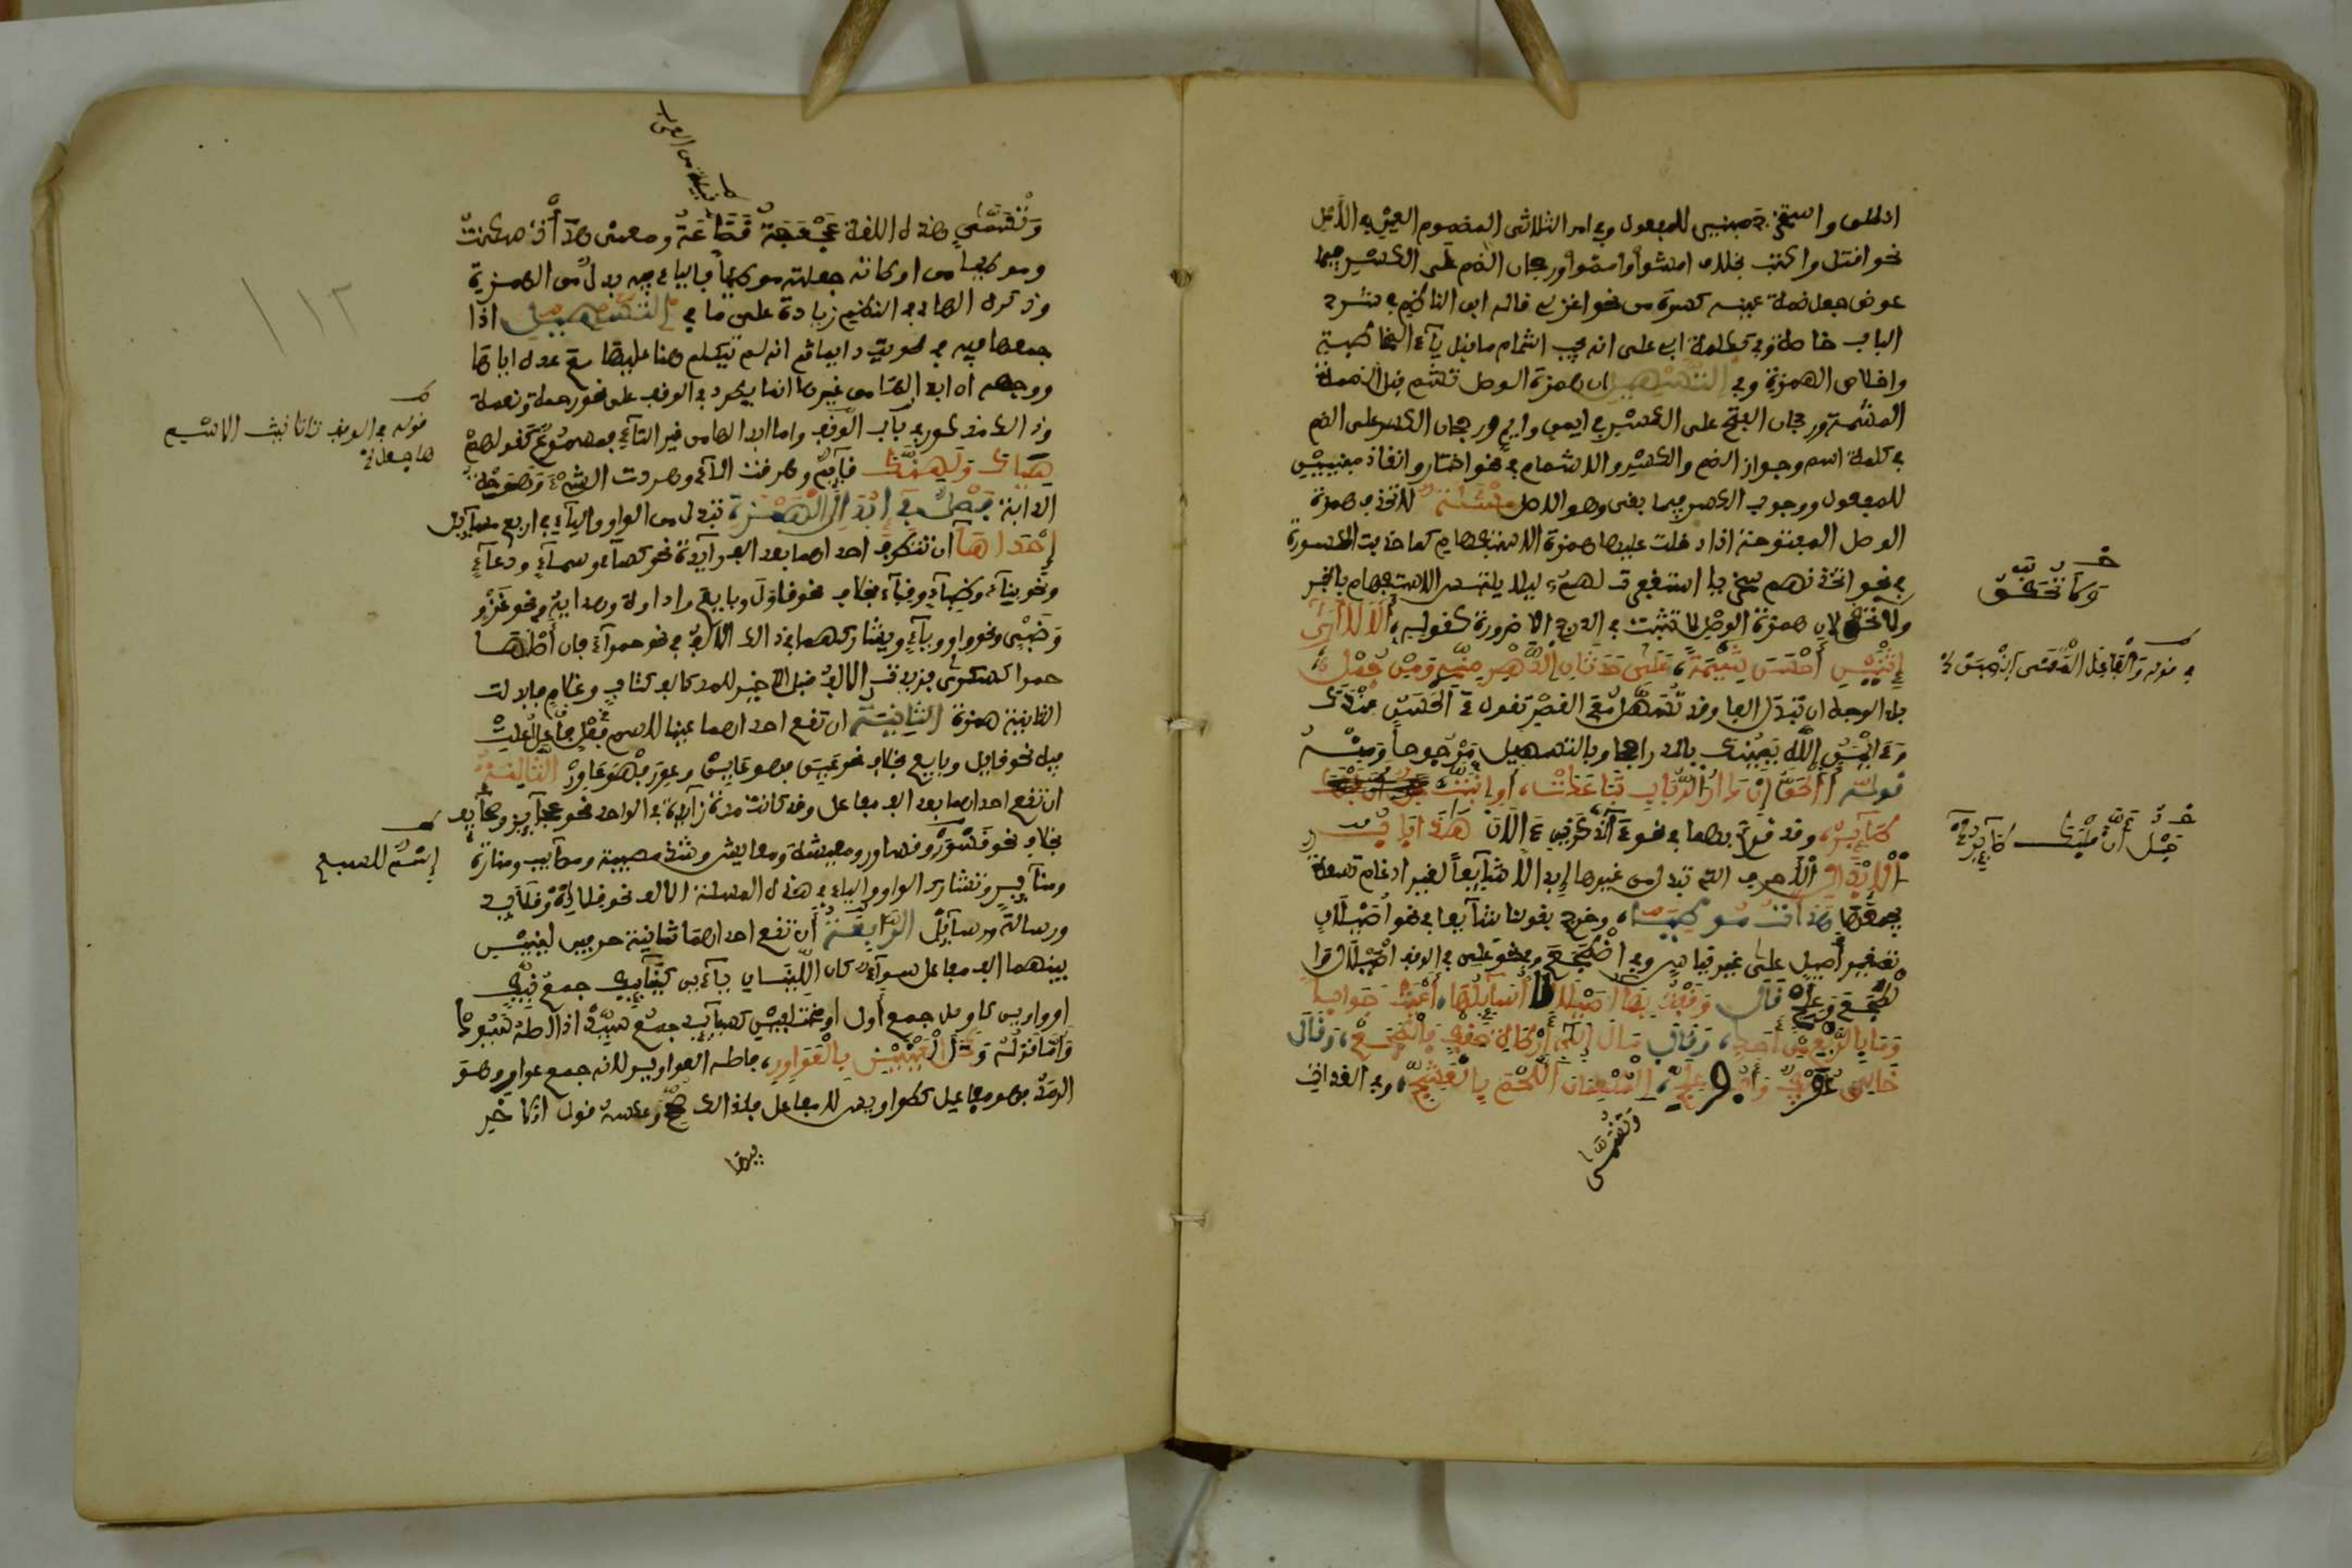 انطلق واستخرج مبنيين للمفعول وفي امر الثلاثي المضموم العين في الأصل
نحو اقتل واكتب بخلاف امشوا وامضوا ورجحان الضم على الكسر فيما
عرض جعل ضمة عينه كسرة من نحو اغزي قاله ابن الناظم في شرح
الباب خاصة وفي تكملة ابي على انه يجب اشمام ما قبل ياء المخاطبة
واخلاص الهمزة وفي التسهيل ان همزة الوصل تشم قبل الضمة
المشمة ورجحان الفتح على الكسر في ايمن وايم ورجحان الكسر على الضم
في كلمة اسم وجواز الضم والكسر والاشمام في نحو اختار وانقاد مبنيين
للمفعول ووجوب الكسر فيما بقى وهو الاصل مسئلة لا تحذف همزة
الوصل المفتوحة اذا دخلت عليها همزة الاستفهام كما حذفت المكسورة
في نحو اتخذنهم سخريا استغفرت لهم ليلا يلتبس الاستفهام بالخبر
ولا تحقق لان همزة الوصل لا تثبت في الدرج الا ضرورة كقوله ألا لا أرى
إثنين أحسن شيمة على حدثان الدهر مني ومن جمل
بل الوجه ان تبدل الفا وقد تسهل مع القصر تقول ءالحسن عندك
وءايمن الله يمينك بالمد راجحا وبالتسهيل مرجوحا ومنه
قوله أالحق إن دار الرباب تباعدت، أو انبت
طآير، وقد قرئ بهما في نحو ءآلذكرين ءالان هذا باب
الابدال الأحرف التي تبدل من غيرها إبدالا شآيعا لغير ادغام تسعة
يجمعها هدأت موطيا، وخرج بقولنا شآيعا نحو أصيلال
تصغير أصيل على غير قياس وفي اضطجع وفي نحو علي في الوقف اصيلال وا
لطجع وعلج قال وقفت بها أصيلالا أسايلها، أعيت جوابا
وما بالربع من أحد، وقال مال إلى أرطاة حقف فالطجع، وقال
خالي عويف وأبو علج، المطعمان اللحم بالعشج، وفي الغداة
وتسمى
ولا تحقق
في قوله والفاعل
حبل أن قلبك طآير
وتسمى هذه اللغة عجعجة قضاعة ومعنى هدأت سكنت
وموطيا من اوطاته جعلته موطيا فالياء فيه بدل من الهمزة
وذكره الهاء في النظم زيادة على ما في التسهيل اذا
جمعها فيه في طويت دايما ثم انه لم يتكلم هنا عليها مع عده اياها
ووجهه ان ابدالها من غيرها انما يطرد في الوقف على نحو رحمة ونعمة
وذلك مذكور في باب الوقف واما ابدالها من غير التآء فمسموع كقولهم
هياك ولهنك فآيم وهرقت المآء وهردت الشيء وهرحت
الدابة فصل في ابدال الهمزة تبدل من الواو واليآء في اربع مسآيل
إحداها ان تتطرف احداهما بعد الف زآيدة نحو كسآء وسمآء ودعآء
ونحو بنآء وظبآء وفنآء بخلاف نحو قاول وبايع واداوة وهداية ونحو غزو
وظبي ونحو واو وءاي ويشاركهما في ذلك الالف في نحو حمرآء فان أصلها
حمرا كسكرى فزيدت الالف قبل الآخر للمد كالف كتاب وغلام فابدلت
الثانية همزة الثانية ان تقع احداهما عينا لاسم فاعل فعل أعلت
فيه نحو قايل وبايع بخلاف نحو عين فهو عاين وعور فهو عاور الثالثة
ان تقع احداهما بعد الف مفاعل وقد كانت مدة زآيدة في الواحد نحو عجآيز وصحآيف
بخلاف نحو قسور وقساور ومعيشة ومعايش وشذ مصيبة ومصآيب ومنارة
ومنآير وتشارك الواو والياء في هذه المسئلة الالف نحو قلادة وقلآيد
ورسالة ورسآيل الرابعة أن تقع احداهما ثانية حرفين لينين
بينهما الف مفاعل سوآء كان اللينان يآءين كنيآيف جمع نيف
او واوين كاوايل جمع أول او مختلفين كسيآيد جمع سيد اذ اصله سيود
وأما قوله وكحل العينين بالعواور، فاصله العواوير لانه جمع عوار وهو
الرمد فهو مفاعيل كطواويس لا مفاعل فلذلك صح وعكسه قول الاخر
فيها
١١٢
قبيلة من العرب
قوله في الوقف تا تانيث الاسم
ها جعل
إسم للسبع